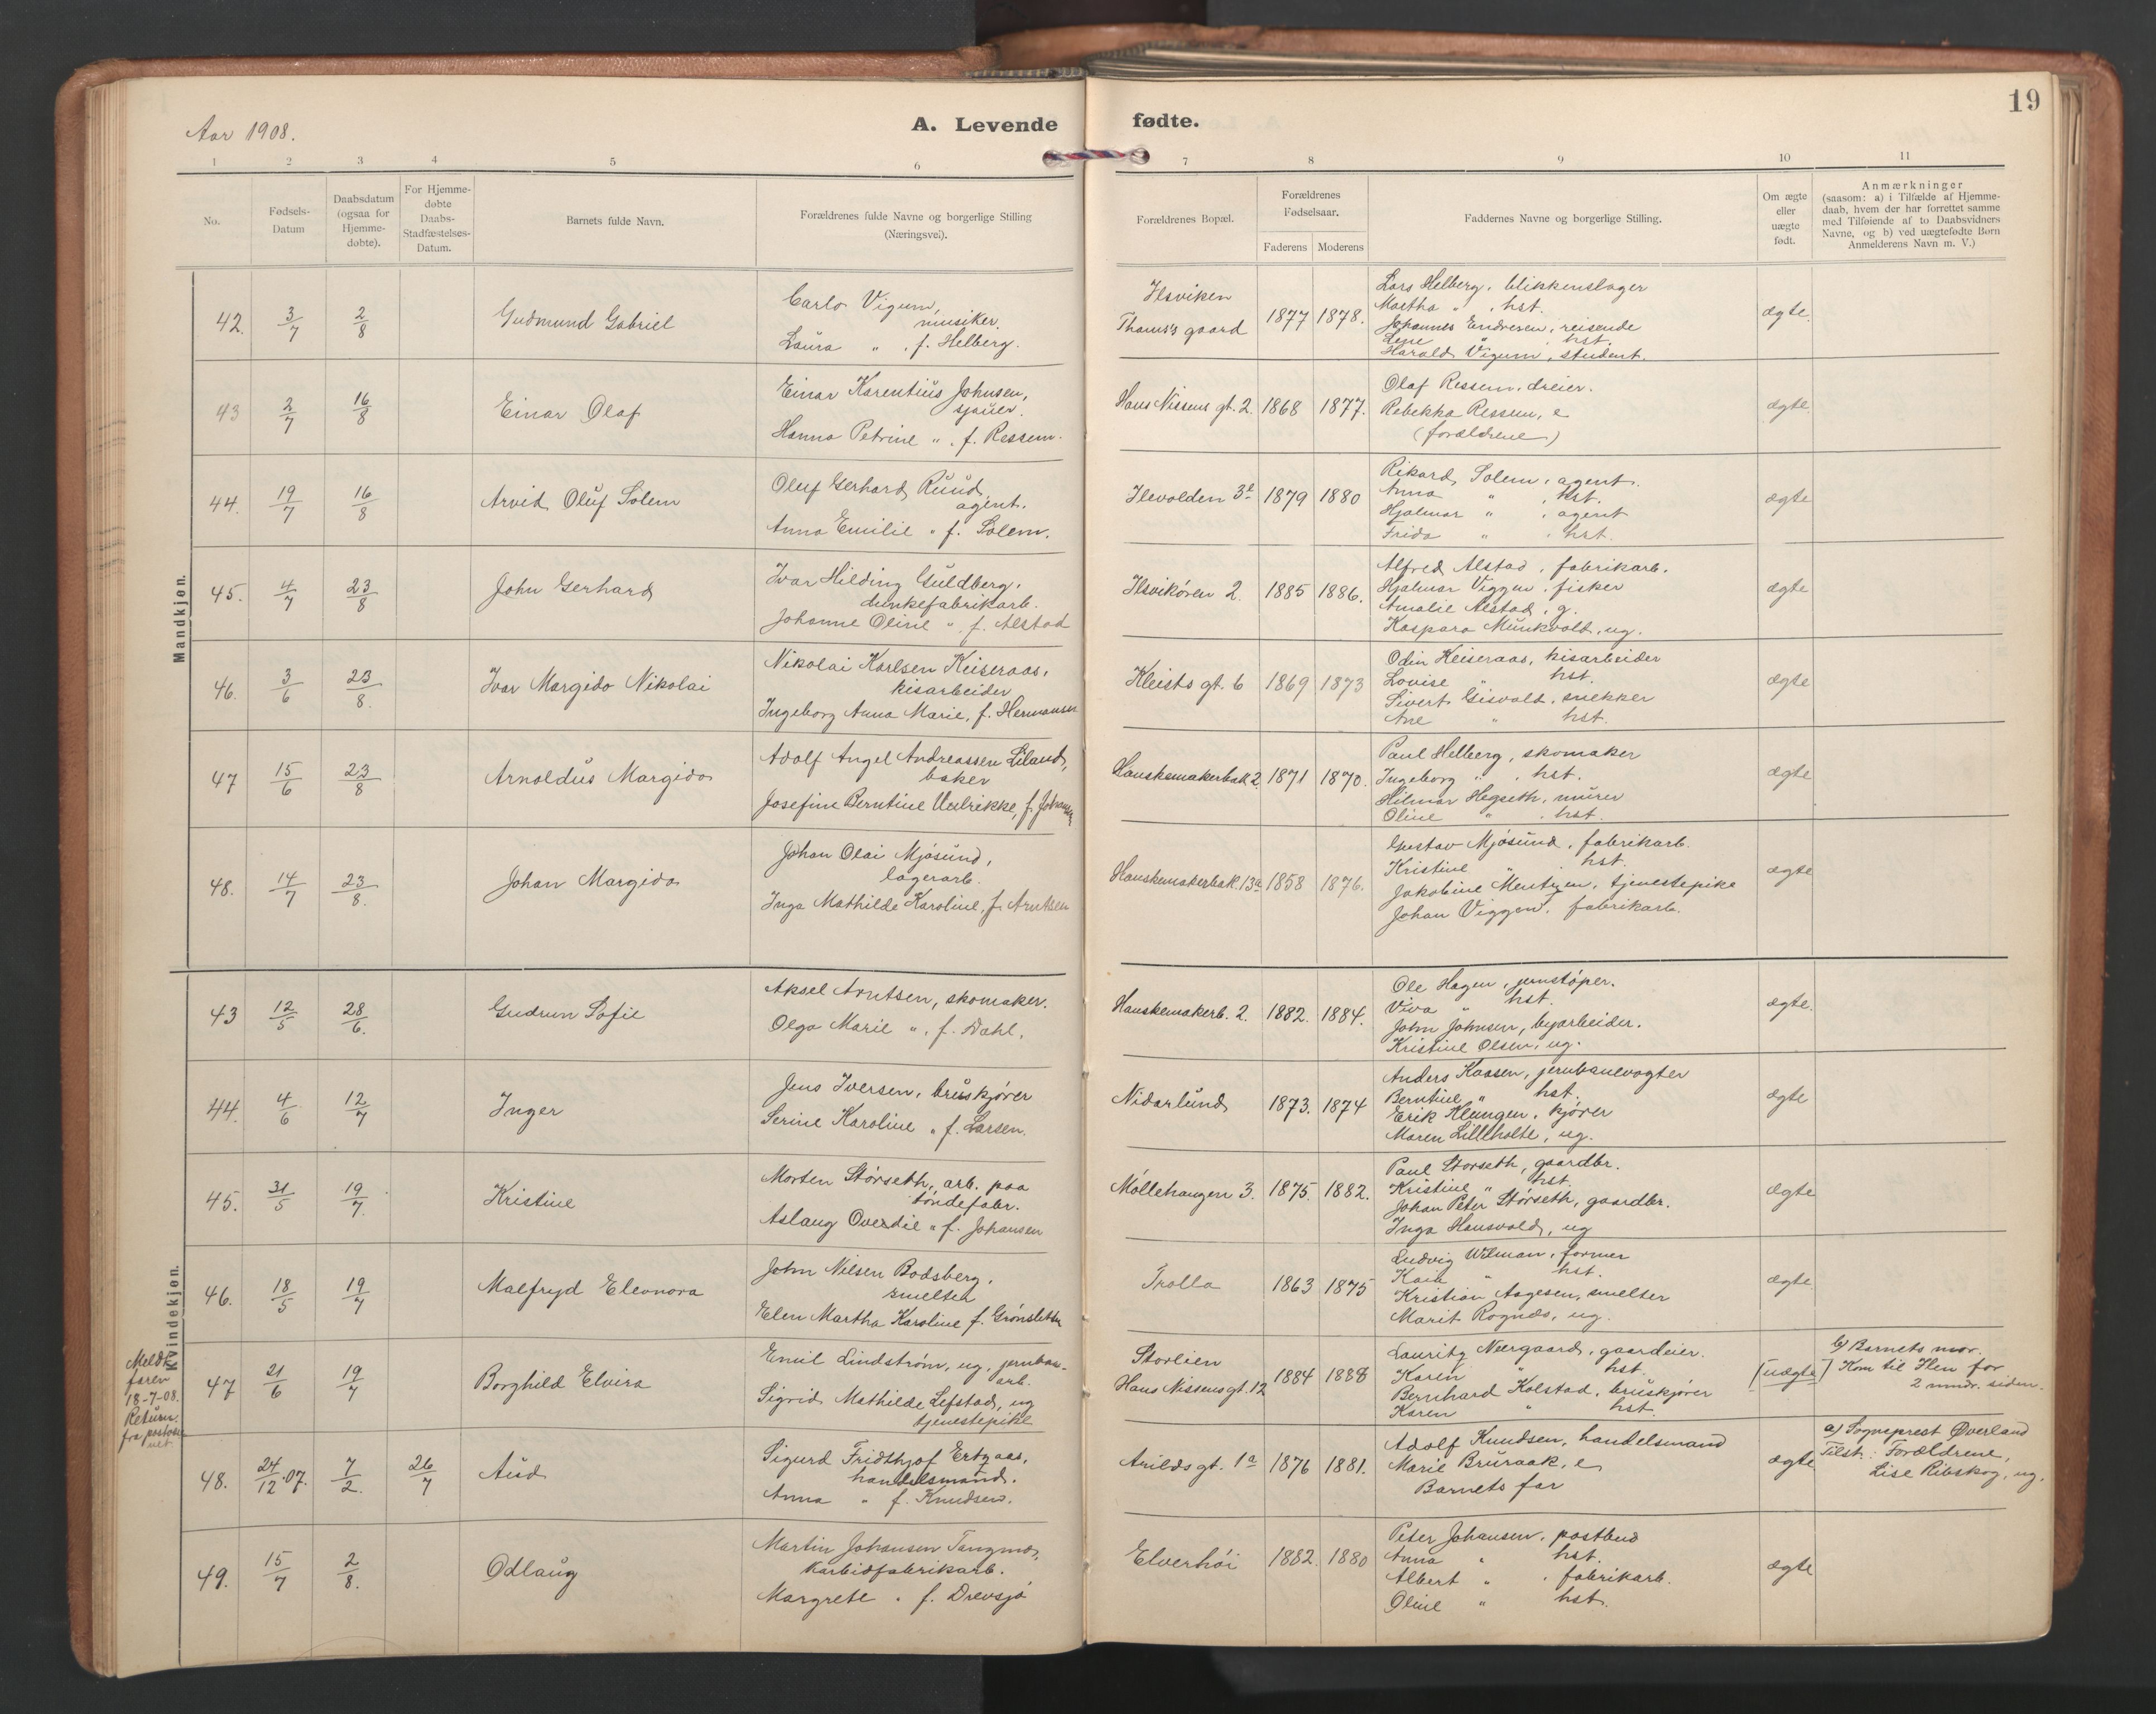 Aar 1908.
A. Levende fødte.
19
1 2 3 4 5 6 7 8 9 10 11
No.
Fødsels-
Datum
Daabsdatum
(ogsaa for
Hjemme-
døbte).
For Hjemme-
døbte
Daabs-
Stadfæstelses-
Datum.
Barnets fulde Navn.
Forældrenes fulde Navne og borgerlige Stilling
(Næringsvei).
Forældrenes Bopæl.
Forældrenes
Fødselsaar.
Faderens Moderens
Faddernes Navne og borgerlige Stilling.
Om ægte
eller
uægte
født.
Anmærkninger
(saasom: a) i Tilfælde af Hjemme-
daab, hvem der har forrettet samme
med Tilføiende af to Daabsvidners
Navne, og b) ved uægtefødte Børn
Anmelderens Navn m. V.)
Mandkjøn.
42. 3/7 2/8 Gudmund Gabriel
Carlo Vigum,
musiker.
Laura " , f. Helberg.
Ilsviken
Thams's gaard
1877 1878.
Lars Helberg, blikkenslager
Martha " , hst.
Johannes Endresen, reisende
Lene " , hst.
Harald Vigum, student.
ægte.
43 2/7 16/8 Einar Olaf
Einar Karentius Johnsen,
sjauer.
Hanna Petrine " , f. Ressem.
Hans Nissens gt. 2. 1868 1877.
Olaf Ressem, dreier.
Rebekka Ressem, e
(forældrene)
ægte.
44. 19/7 16/8 Arvid Oluf Solem
Oluf Gerhard Ruud,
agent.
Anna Emilie " f. Solem.
Ilevolden 3e 1879 1880
Rikard Solem, agent.
Anna " , hst.
Hjalmar " , agent
Frida " , hst.
ægte
45. 4/7 23/8 John Gerhard
Ivar Hilding Guldberg,
dunkefabrikarb.
Johanne Oline " , f. Alstad
Ilsvikøren 2. 1885 1886.
Alfred Alstad, fabrikarb.
Hjalmar Viggen, fisker
Amalie Alstad, g.
Kaspara Munkvold, ug.
ægte
46. 3/6 23/8. Ivar Margido Nikolai
Nikolai Karlsen Keiseraas,
kisarbeider
Ingeborg Anna Marie, f. Hermansen
Kleists gt. 6 1869 1873
Odin Keiseraas, kisarbeider
Lovise " hst.
Sivert Gisvold, snekker
Ane " hst.
ægte
47 15/6 23/8 Arnoldus Margido
Adolf Angel Andreassen Liland,
baker
Josefine Berntine Uulrikke, f. Johansen
Hanskemakerbak. 2. 1871 1870.
Paul Helberg, skomaker
Ingeborg " , hst.
Hilmar Hegseth, murer
Oline " , hst.
ægte
48. 14/7 23/8. Johan Margido
Johan Olai Mjøsund,
lagerarb.
Inga Mathilde Karoline, f. Arntsen
Hanskemakerbak. 13a 1858 1876.
Gustav Mjøsund, fabrikarb.
Kristine " , hst.
Jakobine Mentzen, tjenestepike
Johan Viggen, fabrikarb.
ægte
Kvindekjøn.
43 12/5 28/6. Gudrun Sofie
Aksel Arntsen, skomaker.
Olga Marie " , f. Dahl.
Hanskemakerb. 2. 1882. 1884.
Ole Hagen, jernstøper.
Viva " hst.
John Johnsen, byarbeider.
Kristine Olsen, ug.
ægte.
44. 4/6 12/7 Inger
Jens Iversen, bruskjører
Serine Karoline " f. Larsen.
Nidarlund 1873. 1874
Anders Kaasen, jernbanevogter
Berntine " hst.
Erik Klungen, kjører
Maren Lillholte, ug.
ægte
45. 31/5 19/7. Kristine
Morten Størseth, arb. paa
tøndefabr.
Aslaug Overdie " f. Johansen
Møllehaugen 3. 1875. 1882.
Paul Størseth, gaardbr.
Kristine " hst.
Johan Peter Størseth, gaardbr.
Inga Hansvold, ug
ægte
46. 18/5 19/7 Malfryd Eleonora
John Nilsen Bodsberg,
smelter
Elen Martha Karoline f. Grønsletten
Trolla 1863 1875
Ludvig Wilman, former
Kaia " hst.
Kristian Aagesen, smelter
Marit Rognes, ug.
ægte.
Meldt
faren
18-7-08.
Return.
fra postvæs-
net.
47 21/6 19/7 Borghild Elvira
Emil Lindstrøm, ug, jernban-
arb.
Sigrid Mathilde Lefstad, ug
tjenestepike
Storlien
Hans Nissens gt. 12 1884 1888
Lauritz Neergaard, gaardeier.
Karin " hst.
Bernhard Kolstad, bruskjører
Karen " hst.
[uægte]
b) Barnets mor.
Kom til Ilen for
2 mndr. siden.
48. 24/12.07. 7/2. 26/7 Aud
Sigurd Fridthjof Ertzaas,
handelsmand.
Anna " f. Knudsen.
Arilds gt. 1a 1876 1881.
Adolf Knudsen, handelsmand
Marie Bruraak, e
Barnets far
ægte
a) Sogneprest Øverland
Tilst.: Forældrene,
Lise Ribskog, ug.
49. 15/7 2/8. Odlaug
Martin Johansen Tangmo,
karbidfabrikarb.
Margrete " f. Drevsjø
Elverhøi 1882. 1880
Peter Johansen, postbud
Anna " hst.
Albert " , fabrikarb.
Oline " hst.
ægte